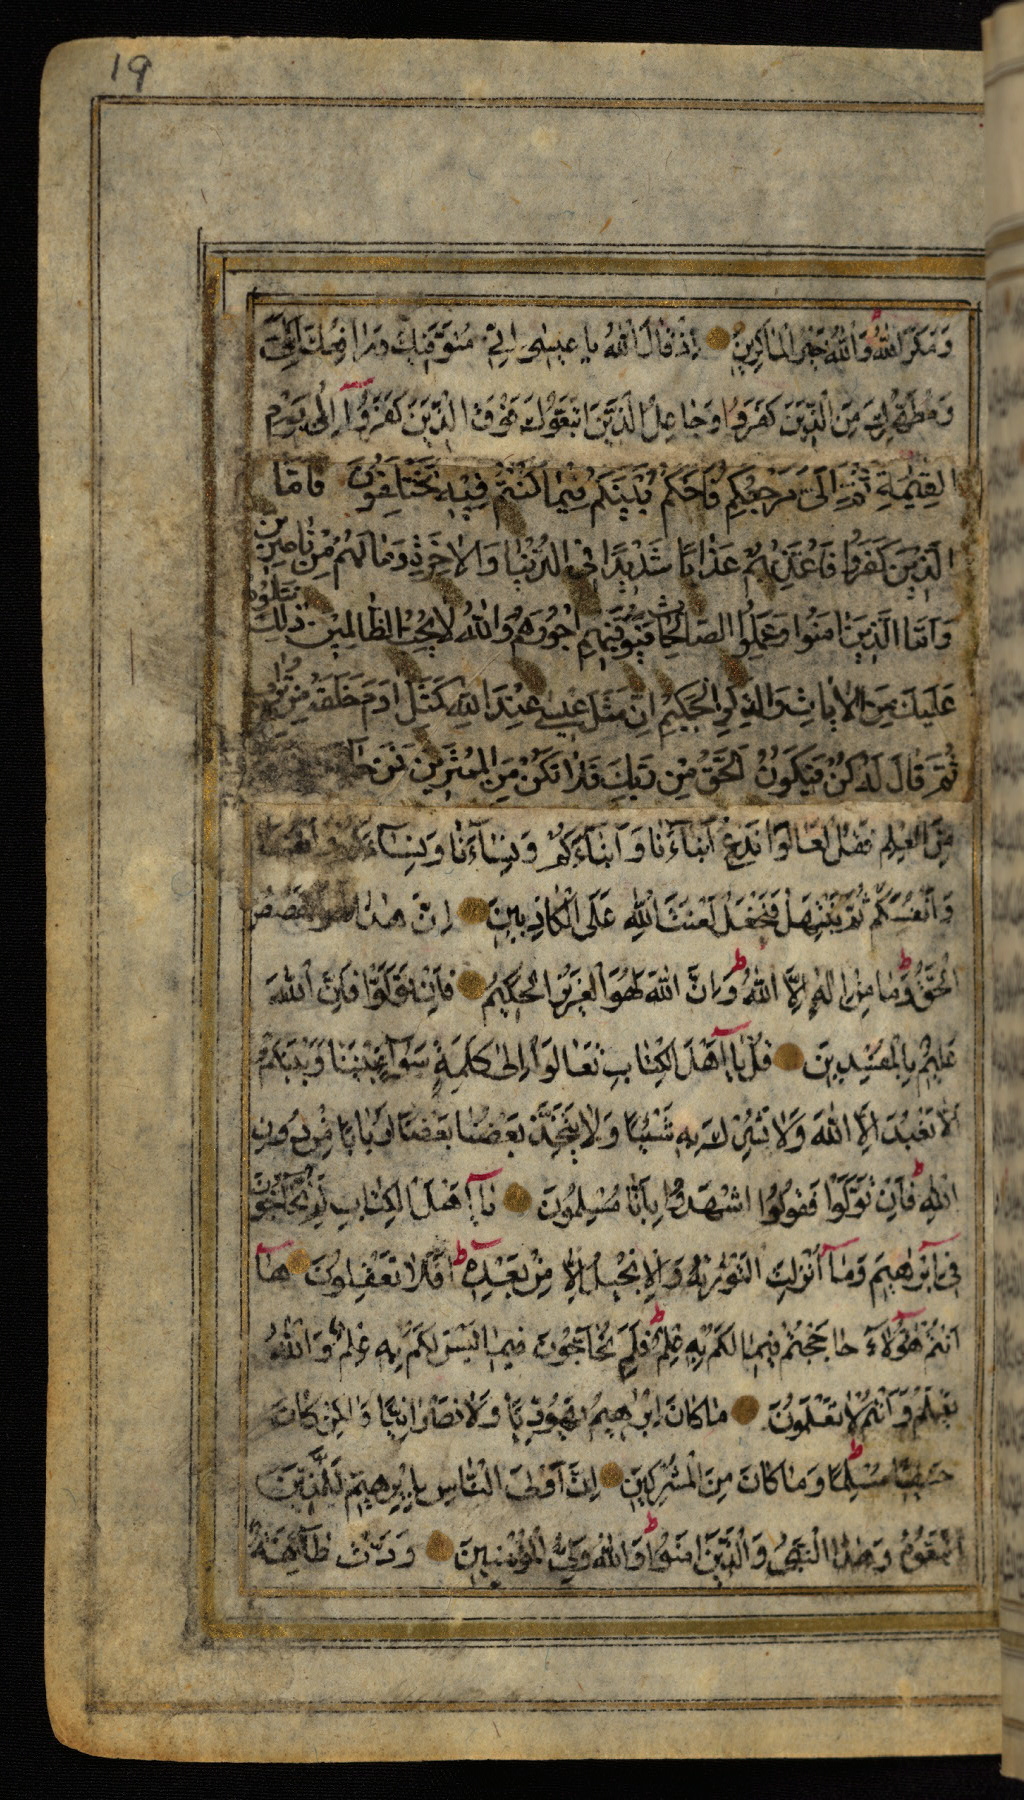 19
وَمَكَرَ اللهُ وَاللهُ خَيْرُ الْمَاكِرِينَ اِذْ قَالَ اللهُ يا عِيسٰى اِنِّى مُتَوَفِّيكَ وَرَافِعُكَ اِلَىَّ
وَمُطَهِّرُكَ مِنَ الَّذِينَ كَفَرُوا وَجَاعِلُ الَّذِينَ اتَّبَعُوكَ فَوْقَ الَّذِينَ كَفَرُوا اِلٰى يَوْمِ
الْقِيٰمَةِ ثُمَّ اِلَىَّ مَرْجِعُكُمْ فَاَحْكُمُ بَيْنَكُمْ فِيمَا كُنْتُمْ فِيهِ تَخْتَلِفُونَ فَاَمَّا
الَّذِينَ كَفَرُوا فَاُعَذِّبُهُمْ عَذَابًا شَدِيدًا فِى الدُّنْيَا وَالْاٰخِرَةِ وَمَا لَهُمْ مِنْ نَاصِرِينَ
وَاَمَّا الَّذِينَ اٰمَنُوا وَعَمِلُوا الصَّالِحَاتِ فَيُوَفِّيهِمْ اُجُورَهُمْ وَاللهُ لَا يُحِبُّ الظَّالِمِينَ ذٰلِكَ نَتْلُوهُ
عَلَيْكَ مِنَ الْاٰيَاتِ وَالذِّكْرِ الْحَكِيمِ اِنَّ مَثَلَ عِيسٰى عِنْدَ اللهِ كَمَثَلِ اٰدَمَ خَلَقَهُ مِنْ تُرَابٍ
ثُمَّ قَالَ لَهُ كُنْ فَيَكُونُ اَلْحَقُّ مِنْ رَبِّكَ فَلَا تَكُنْ مِنَ الْمُمْتَرِينَ فَمَنْ
مِنَ الْعِلْمِ فَقُلْ تَعَالَوْا نَدْعُ اَبْنَاءَنَا وَاَبْنَاءَكُمْ وَنِسَاءَنَا وَنِسَاءَكُمْ
وَاَنْفُسَكُمْ ثُمَّ نَبْتَهِلْ فَنَجْعَلْ لَعْنَتَ اللهِ عَلَى الْكَاذِبِينَ اِنَّ هٰذَا لَهُوَ الْقَصَصُ
الْحَقُّ وَمَا مِنْ اِلٰهٍ اِلَّا اللهُ وَاِنَّ اللهَ لَهُوَ الْعَزِيزُ الْحَكِيمُ فَاِنْ تَوَلَّوْا فَاِنَّ اللهَ
عَلِيمٌ بِالْمُفْسِدِينَ قُلْ يَا اَهْلَ الْكِتَابِ تَعَالَوْا اِلٰى كَلِمَةٍ سَوَاءٍ بَيْنَنَا وَبَيْنَكُمْ
اَلَّا نَعْبُدَ اِلَّا اللهَ وَلَا نُشْرِكَ بِهِ شَيْئًا وَلَا يَتَّخِذَ بَعْضُنَا بَعْضًا اَرْبَابًا مِنْ دُونِ
اللهِ فَاِنْ تَوَلَّوْا فَقُولُوا اشْهَدُوا بِاَنَّا مُسْلِمُونَ يَا اَهْلَ الْكِتَابِ لِمَ تُحَاجُّونَ
فِى اِبْرٰهِيمَ وَمَا اُنْزِلَتِ التَّوْرٰيةُ وَالْاِنْجِيلُ اِلَّا مِنْ بَعْدِهِ اَفَلَا تَعْقِلُونَ هَا
اَنْتُمْ هٰؤُلَاءِ حَاجَجْتُمْ فِيمَا لَكُمْ بِهِ عِلْمٌ فَلِمَ تُحَاجُّونَ فِيمَا لَيْسَ لَكُمْ بِهِ عِلْمٌ وَاللهُ
يَعْلَمُ وَاَنْتُمْ لَا تَعْلَمُونَ مَا كَانَ اِبْرٰهِيمُ يَهُودِيًّا وَلَا نَصْرَانِيًّا وَلٰكِنْ كَانَ
حَنِيفًا مُسْلِمًا وَمَا كَانَ مِنَ الْمُشْرِكِينَ اِنَّ اَوْلَى النَّاسِ بِاِبْرٰهِيمَ لَلَّذِينَ
اتَّبَعُوهُ وَهٰذَا النَّبِىُّ وَالَّذِينَ اٰمَنُوا وَاللهُ وَلِىُّ الْمُؤْمِنِينَ وَدَّتْ طَائِفَةٌ